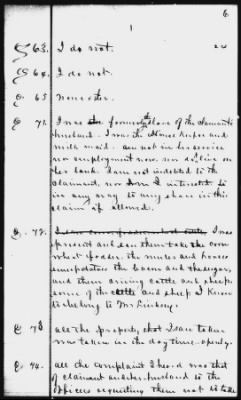 6
1
63. I do not.
64. I do not.
65 none other.
72. I was formerly slave of the claimants
husband. I was the House keeper and
milk maid. am not in his service
nor employment now. nor do I live on
his land. I am not indebted to the
claimant, nor I interest
in any way to any share in this
claim if allowed.
72. I was
present and seen them take the corn
wheat fodder. the mules and horses
the bacon and the sugar,
and them driving cattle and sheep,
some of the cattle and sheep I knew
to belong to Mr
73 all the property that I saw taken
was taken in the day time. openly.
74. all the complaint I heard was that
of claimant and her husband to the
officers requesting them not to take